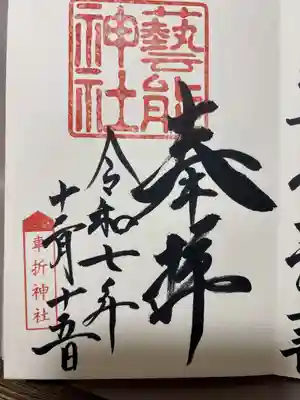 奉拝
藝能
神社
令和七年
十二月十五日
車折神社